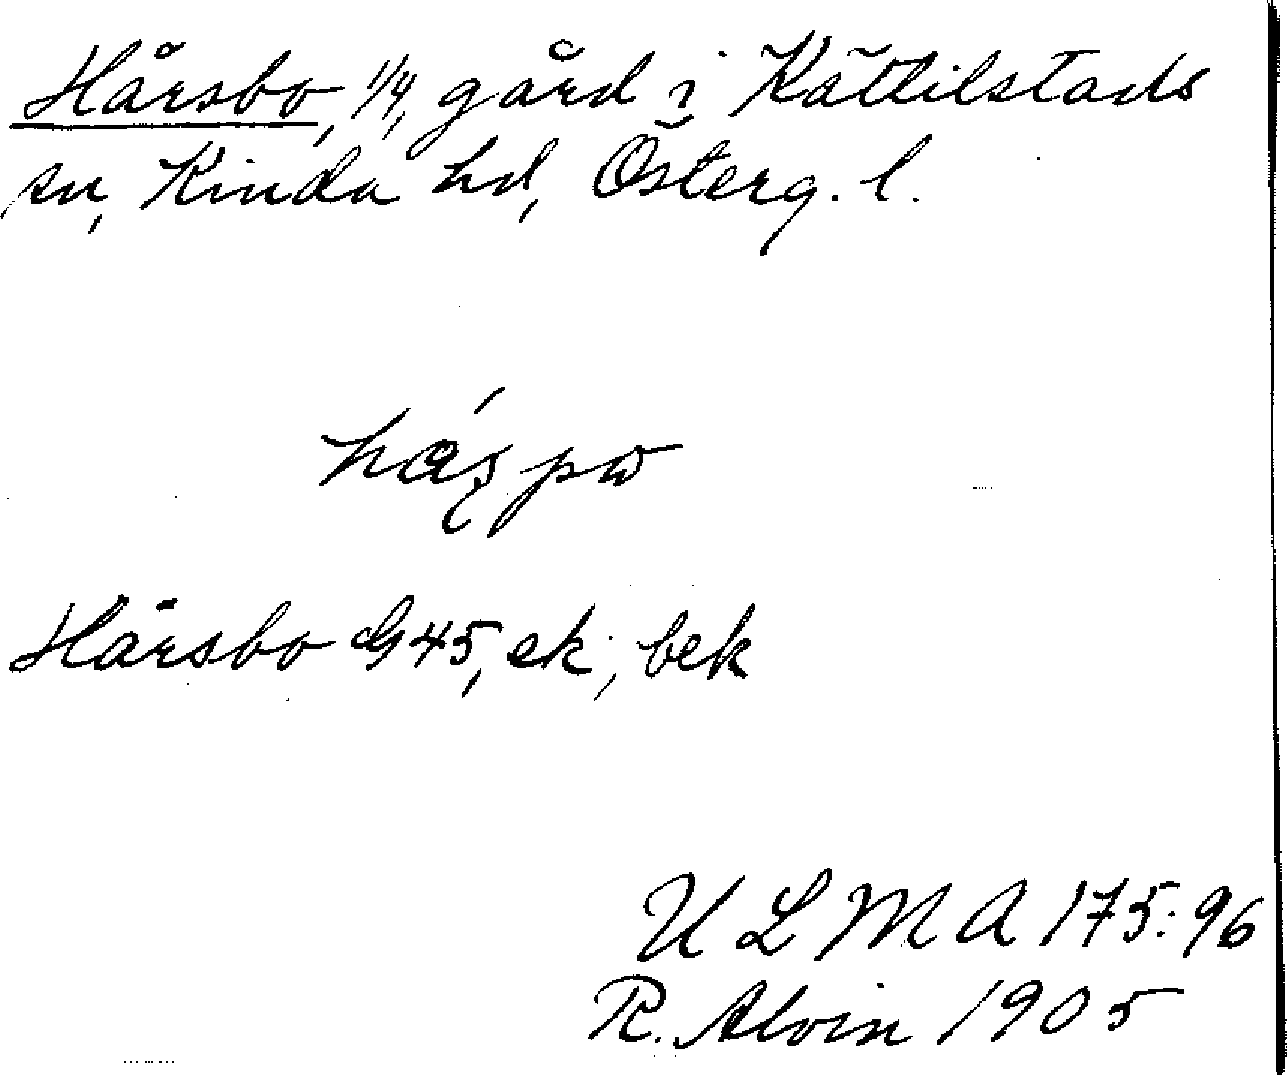 Hårsbo, 1/4, gård i Kättilstads
sn, Kinda hd, Österg. l.
Hårsbo G45, ek; bek
ULMA 175:96
R. Alvin 1905